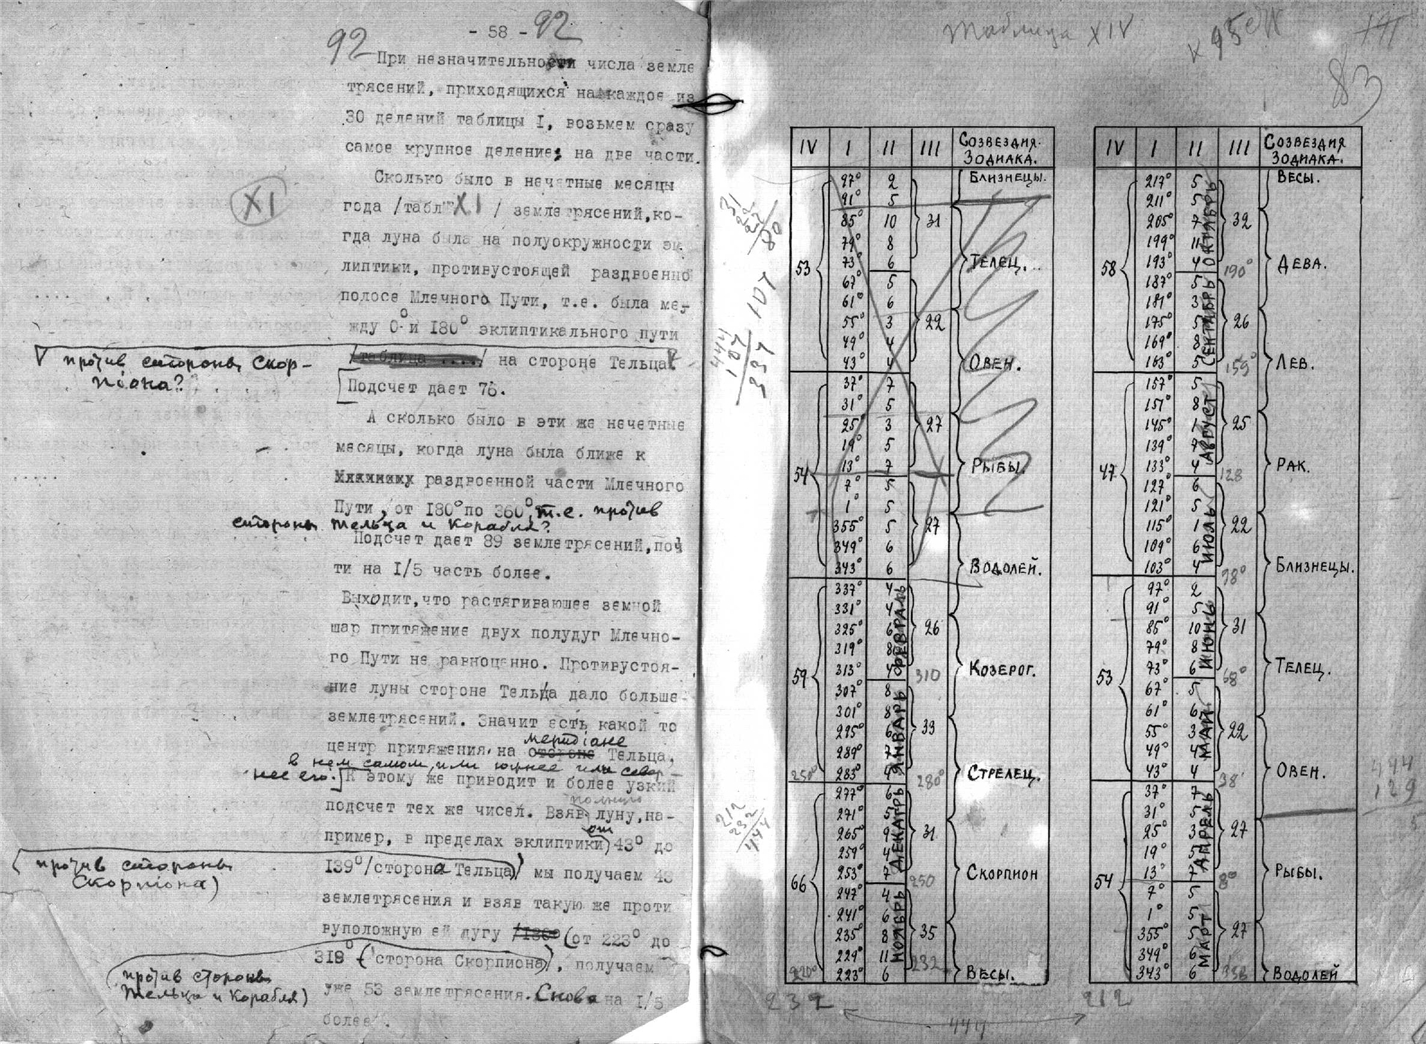 - 58 -
92
92
При незначительности числа земле
трясений, приходящихся на каждое из
30 делений таблицы I, возьмем сразу
самое крупное деление: на две части.
Сколько было в нечетные месяцы
XI
года /табл XI / землетрясений, ко-
гда луна была на полуокружности эк
липтики, противустоящей раздвоенно
полосе Млечного Пути, т.е. была ме-
жду 0° и 180° эклиптикального пути
/таблица ..../ на стороне Тельца
против стороны Скор-
піона??
Подсчет дает 76.
А сколько было в эти же нечетные
месяцы, когда луна была ближе к
раздвоенной части Млечного
Пути, от 180° по 360° т.е. против
стороны Тельца и Корабля?
Подсчет дает 89 землетрясений, поч
ти на I/5 часть более.
Выходит, что растягивающее земной
шар притяжение двух полудуг Млечно-
го Пути не равноценно. Противустоя-
ние луны стороне Тельца дало больше
землетрясений. Значит есть какой то
меридіане
центр притяжения на стороне Тельца,
в нем самом, или южнее или север-
нее его. К этому же приводит и более узкий
подсчет тех же чисел. Взяв луну, на-
пример, в пределах эклиптики от 43° до
против стороны
Скорпіона)
139° /сторона Тельца/ мы получаем 43
землетрясения и взяв такую же проти
вуположную ей дугу (от 223° до
319° (сторона Скорпиона), получаем
(против стороны
Тельца и Корабля)
уже 53 землетрясения. Снова на I/5
более.
Таблица XIV
83
IV I II III Созвездия Зодиака.
97° 2 Близнецы.
91° 5
85° 10 31
79° 8
53 73° 6 Телец.
67° 5
61° 6
55° 3 22
49° 4
43° 4 Овен.
37° 7
31° 5
25° 3 27
19° 5
54 13° 7 Рыбы.
7° 5
1° 5
355° 5 27
349° 6
343° 6 Водолей.
337° 4 Февраль
331° 4
325° 6 26
319° 8
59 313° 4 310 Козерог.
307° 8 Январь
301° 8
295° 6 33
289° 7
250° 283° 4 280° Стрелец.
277° 6 Декабрь
271° 5
265° 9 31
259° 4
253° 7 Скорпион
66 247° 4 250 Ноябрь
241° 6
235° 8 35
229° 11 232
220° 223° 6 Весы.
232
IV I II III Созвездия Зодиака.
217° 5 Октябрь Весы.
211° 5
205° 7 32
199° 11
58 193° 4 190° Дева.
187° 5 Сентябрь
181° 3
175° 5 26
169° 8
163° 5 159° Лев.
157° 5 Август
151° 8
145° 1 25
139° 7
47 133° 4 128 Рак.
127° 6 Июль
121° 5
115° 1 22
109° 6
103° 4 Близнецы.
97° 2 Июнь
91° 5
85° 10 31
79° 8
53 73° 6 68° Телец.
67° 5 Май
61° 6
55° 3 22
49° 4
43° 4 38° Овен.
37° 7 Апрель
31° 5
25° 3 27
19° 5
54 13° 7 8° Рыбы.
7° 5 Март
1° 5
355° 5 27
349° 6
343° 6 Водолей
212
444
31
22
27
80
444
107
337
107
212
232
444
444
129